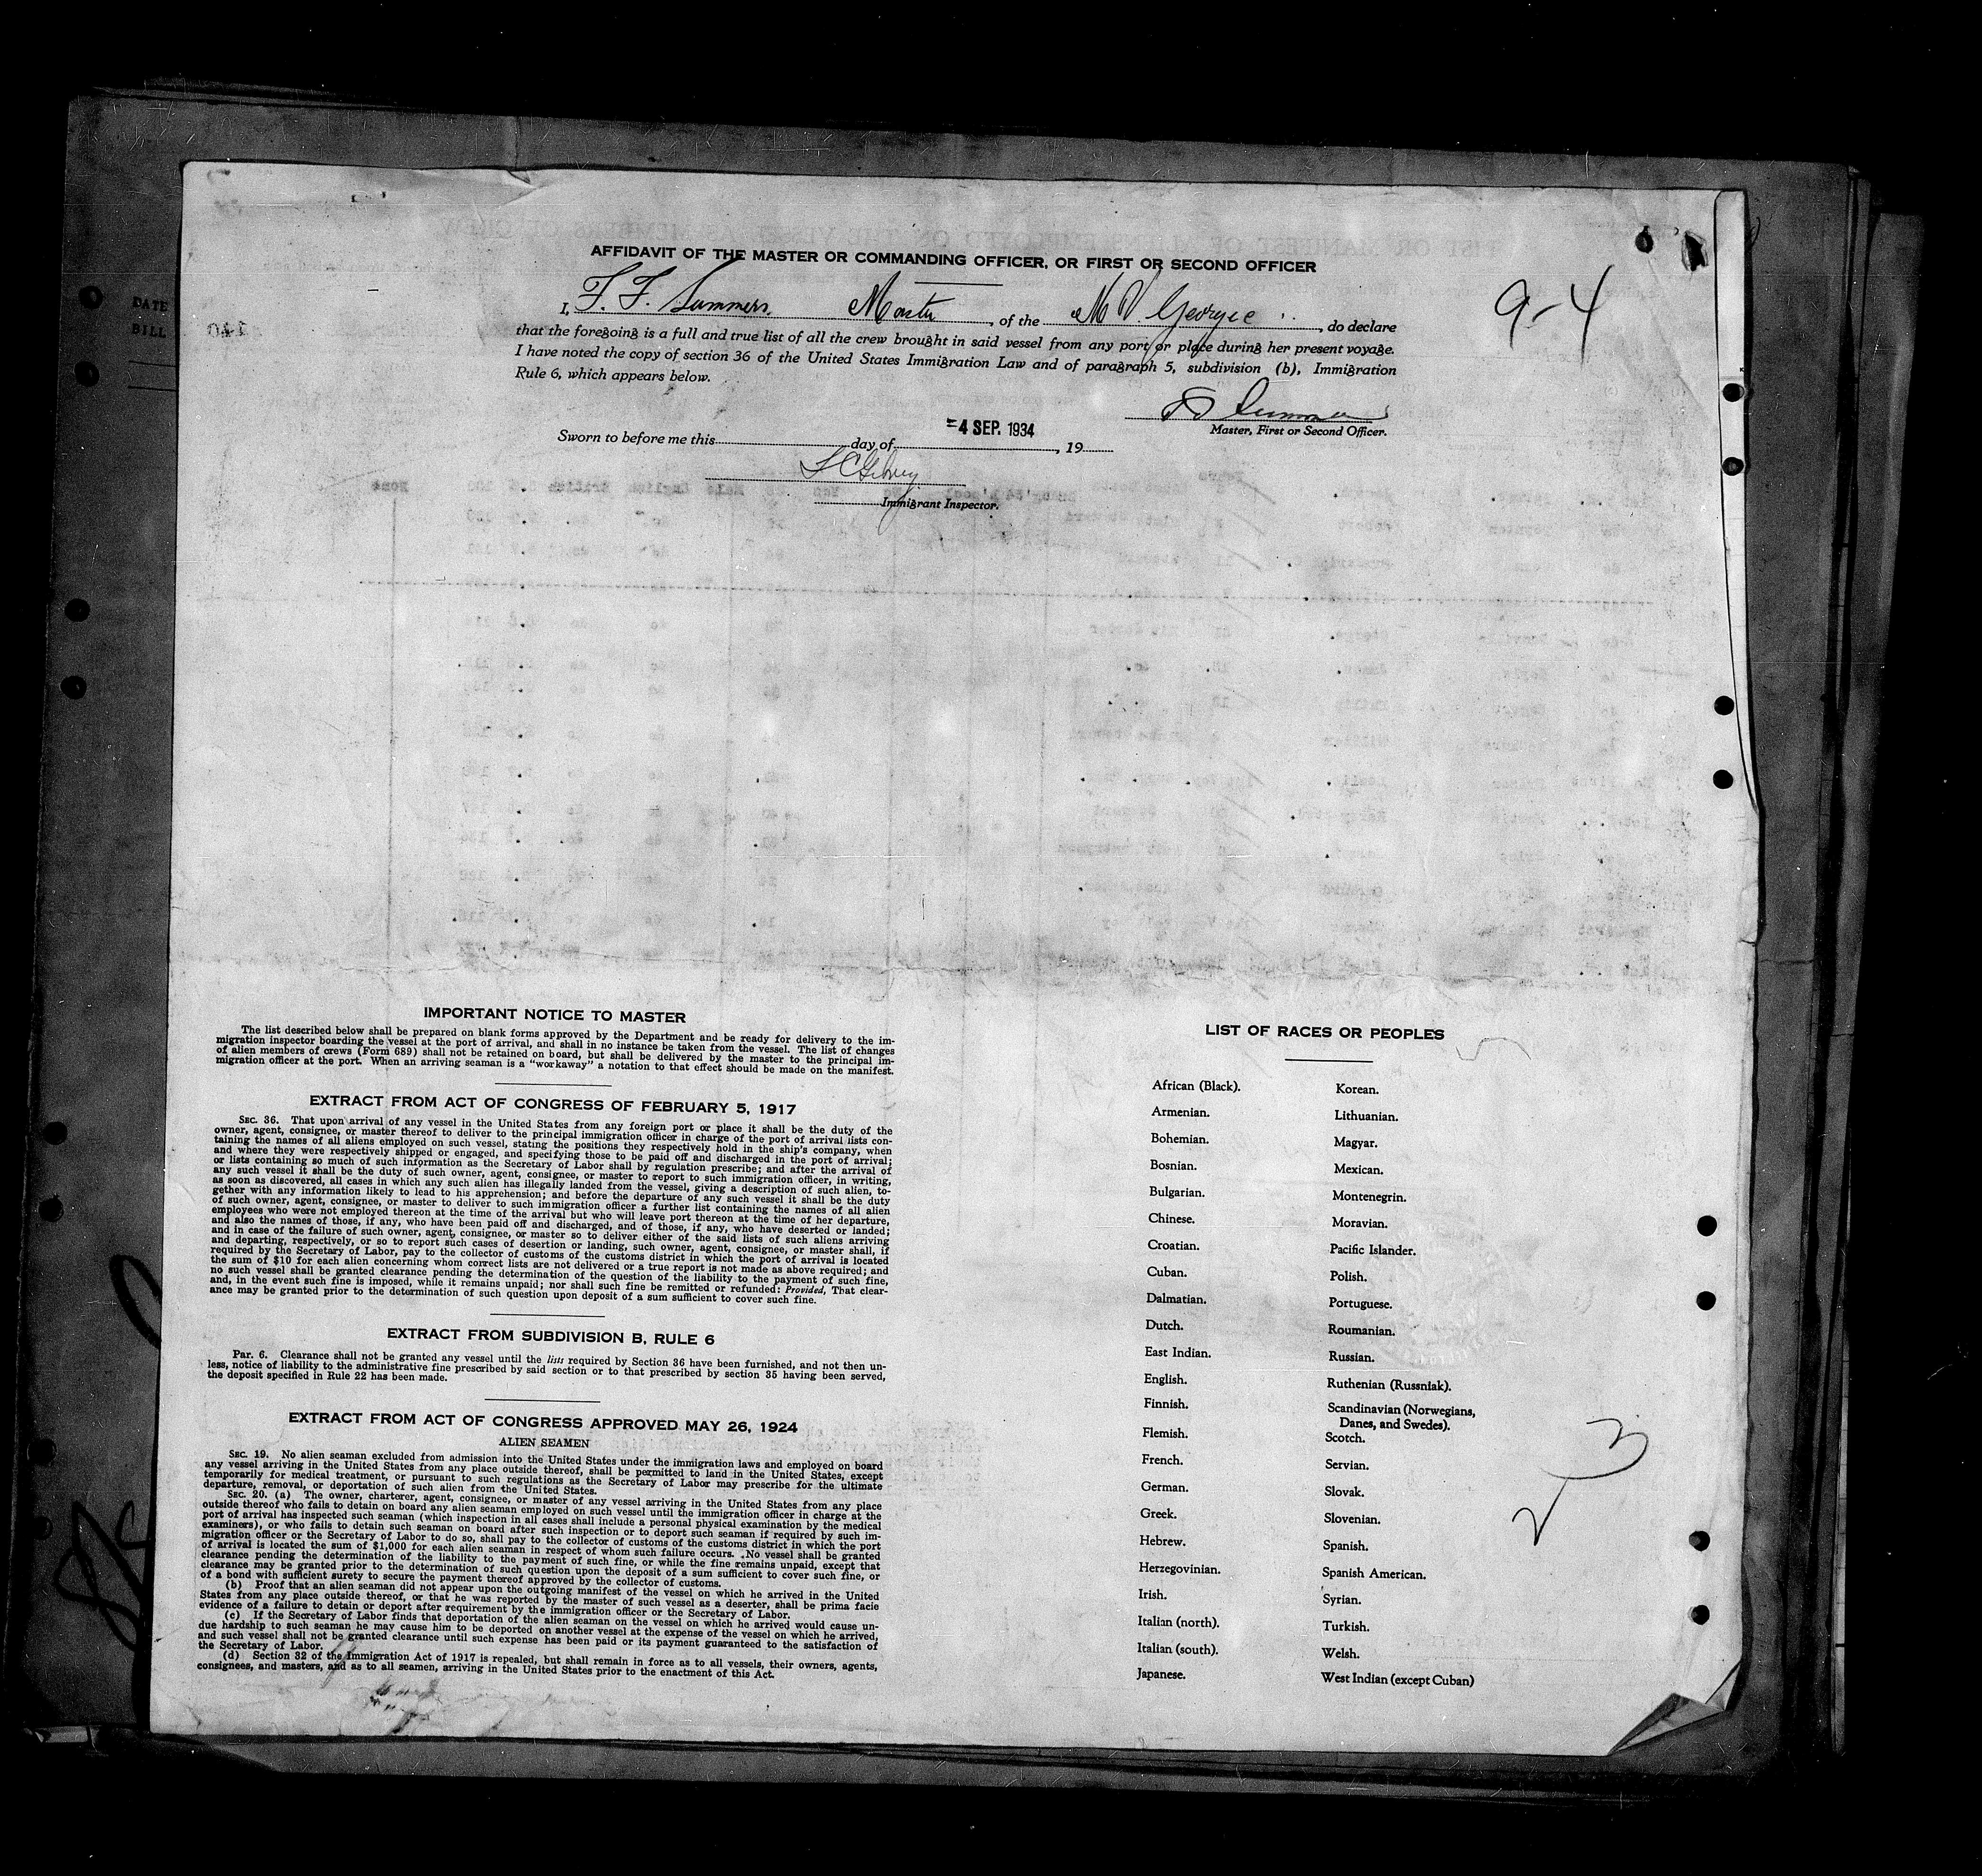 DATE
BILL
AFFIDAVIT OF THE MASTER OR COMMANDING OFFICER, OR FIRST OR SECOND OFFICER
9-4
I, F. F. Summers, Master, of the M V Georgic, do declare
that the foregoing is a full and true list of all the crew brought in said vessel from any port or place during her present voyage.
I have noted the copy of section 36 of the United States Immigration Law and of paragraph 5, subdivision (b), Immigration
Rule 6, which appears below.
Master, First or Second Officer.
Sworn to before me this day of -4 SEP. 1934, 19
Immigrant Inspector.
IMPORTANT NOTICE TO MASTER
The list described below shall be prepared on blank forms approved by the Department and be ready for delivery to the im-
migration inspector boarding the vessel at the port of arrival, and shall in no instance be taken from the vessel. The list of changes
of alien members of crews (Form 689) shall not be retained on board, but shall be delivered by the master to the principal im-
migration officer at the port. When an arriving seaman is a "workaway" a notation to that effect should be made on the manifest.
EXTRACT FROM ACT OF CONGRESS OF FEBRUARY 5, 1917
SEC. 36. That upon arrival of any vessel in the United States from any foreign port or place it shall be the duty of the
owner, agent, consignee, or master thereof to deliver to the principal immigration officer in charge of the port of arrival lists con-
taining the names of all aliens employed on such vessel, stating the positions they respectively hold in the ship's company, when
and where they were respectively shipped or engaged, and specifying those to be paid off and discharged in the port of arrival;
or lists containing so much of such information as the Secretary of Labor shall by regulation prescribe; and after the arrival of
any such vessel it shall be the duty of such owner, agent, consignee, or master to report to such immigration officer, in writing,
as soon as discovered, all cases in which any such alien has illegally landed from the vessel, giving a description of such alien, to-
gether with any information likely to lead to his apprehension; and before the departure of any such vessel it shall be the duty
of such owner, agent, consignee, or master to deliver to such immigration officer a further list containing the names of all alien
employees who were not employed thereon at the time of the arrival but who will leave port thereon at the time of her departure,
and also the names of those, if any, who have been paid off and discharged, and of those, if any, who have deserted or landed;
and in case of the failure of such owner, agent, consignee, or master so to deliver either of the said lists of such aliens arriving
and departing, respectively, or so to report such cases of desertion or landing, such owner, agent, consignee, or master shall, if
required by the Secretary of Labor, pay to the collector of customs of the customs district in which the port of arrival is located
the sum of $10 for each alien concerning whom correct lists are not delivered or a true report is not made as above required; and
no such vessel shall be granted clearance pending the determination of the question of the liability to the payment of such fine,
and, in the event such fine is imposed, while it remains unpaid; nor shall such fine be remitted or refunded: Provided, That clear-
ance may be granted prior to the determination of such question upon deposit of a sum sufficient to cover such fine.
EXTRACT FROM SUBDIVISION B, RULE 6
Par. 6. Clearance shall not be granted any vessel until the lists required by Section 36 have been furnished, and not then un-
less, notice of liability to the administrative fine prescribed by said section or to that prescribed by section 35 having been served,
the deposit specified in Rule 22 has been made.
EXTRACT FROM ACT OF CONGRESS APPROVED MAY 26, 1924
ALIEN SEAMEN
SEC. 19. No alien seaman excluded from admission into the United States under the immigration laws and employed on board
any vessel arriving in the United States from any place outside thereof, shall be permitted to land in the United States, except
temporarily for medical treatment, or pursuant to such regulations as the Secretary of Labor may prescribe for the ultimate
departure, removal, or deportation of such alien from the United States.
SEC. 20. (a) The owner, charterer, agent, consignee, or master of any vessel arriving in the United States from any place
outside thereof who fails to detain on board any alien seaman employed on such vessel until the immigration officer in charge at the
port of arrival has inspected such seaman (which inspection in all cases shall include a personal physical examination by the medical
examiners), or who fails to detain such seaman on board after such inspection or to deport such seaman if required by such im-
migration officer or the Secretary of Labor to do so, shall pay to the collector of customs of the customs district in which the port
of arrival is located the sum of $1,000 for each alien seaman in respect of whom such failure occurs. No vessel shall be granted
clearance pending the determination of the liability to the payment of such fine, or while the fine remains unpaid, except that
clearance may be granted prior to the determination of such question upon the deposit of a sum sufficient to cover such fine, or
of a bond with sufficient surety to secure the payment thereof approved by the collector of customs.
(b) Proof that an alien seaman did not appear upon the outgoing manifest of the vessel on which he arrived in the United
States from any place outside thereof, or that he was reported by the master of such vessel as a deserter, shall be prima facie
evidence of a failure to detain or deport after requirement by the immigration officer or the Secretary of Labor.
(c) If the Secretary of Labor finds that deportation of the alien seaman on the vessel on which he arrived would cause un-
due hardship to such seaman he may cause him to be deported on another vessel at the expense of the vessel on which he arrived,
and such vessel shall not be granted clearance until such expense has been paid or its payment guaranteed to the satisfaction of
the Secretary of Labor.
(d) Section 32 of the Immigration Act of 1917 is repealed, but shall remain in force as to all vessels, their owners, agents,
consignees, and masters, and as to all seamen, arriving in the United States prior to the enactment of this Act.
LIST OF RACES OR PEOPLES
African (Black).
Armenian.
Bohemian.
Bosnian.
Bulgarian.
Chinese.
Croatian.
Cuban.
Dalmatian.
Dutch.
East Indian.
English.
Finnish.
Flemish.
French.
German.
Greek.
Hebrew.
Herzegovinian.
Irish.
Italian (north).
Italian (south).
Japanese.
Korean.
Lithuanian.
Magyar.
Mexican.
Montenegrin.
Moravian.
Pacific Islander.
Polish.
Portuguese.
Roumanian.
Russian.
Ruthenian (Russniak).
Scandinavian (Norwegians,
Danes, and Swedes).
Scotch.
Servian.
Slovak.
Slovenian.
Spanish.
Spanish American.
Syrian.
Turkish.
Welsh.
West Indian (except Cuban)
3